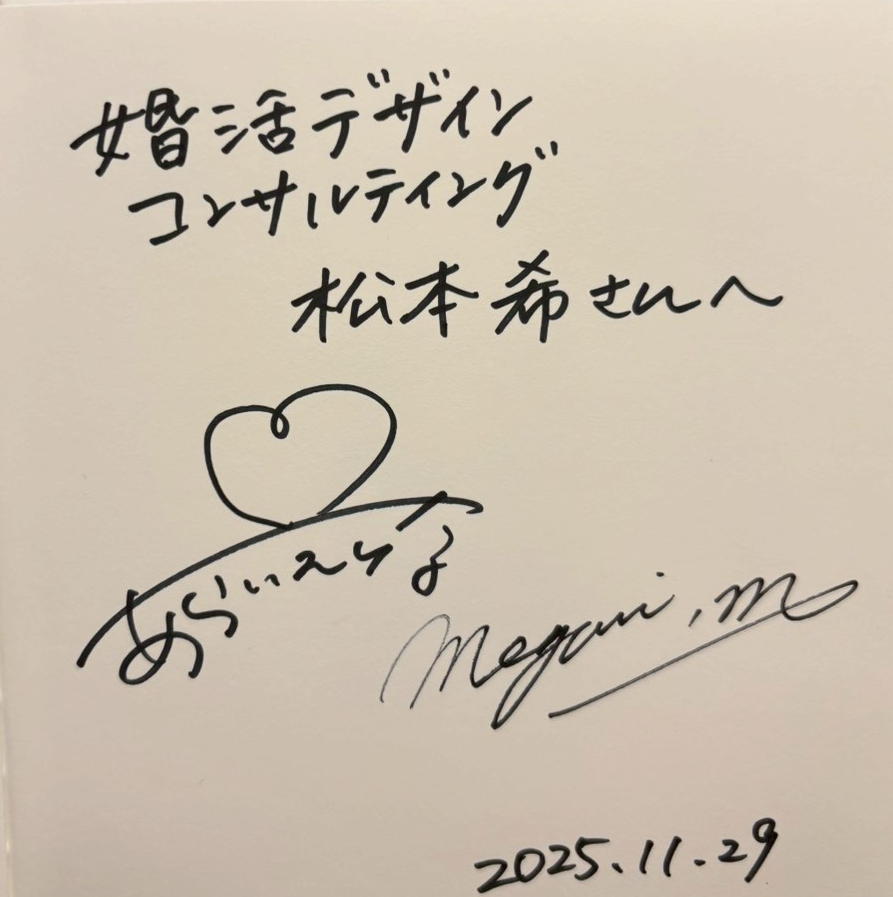 婚活デザイン
コンサルティング
松本希さんへ
あらいえり子
Megumi.m
2025.11.29